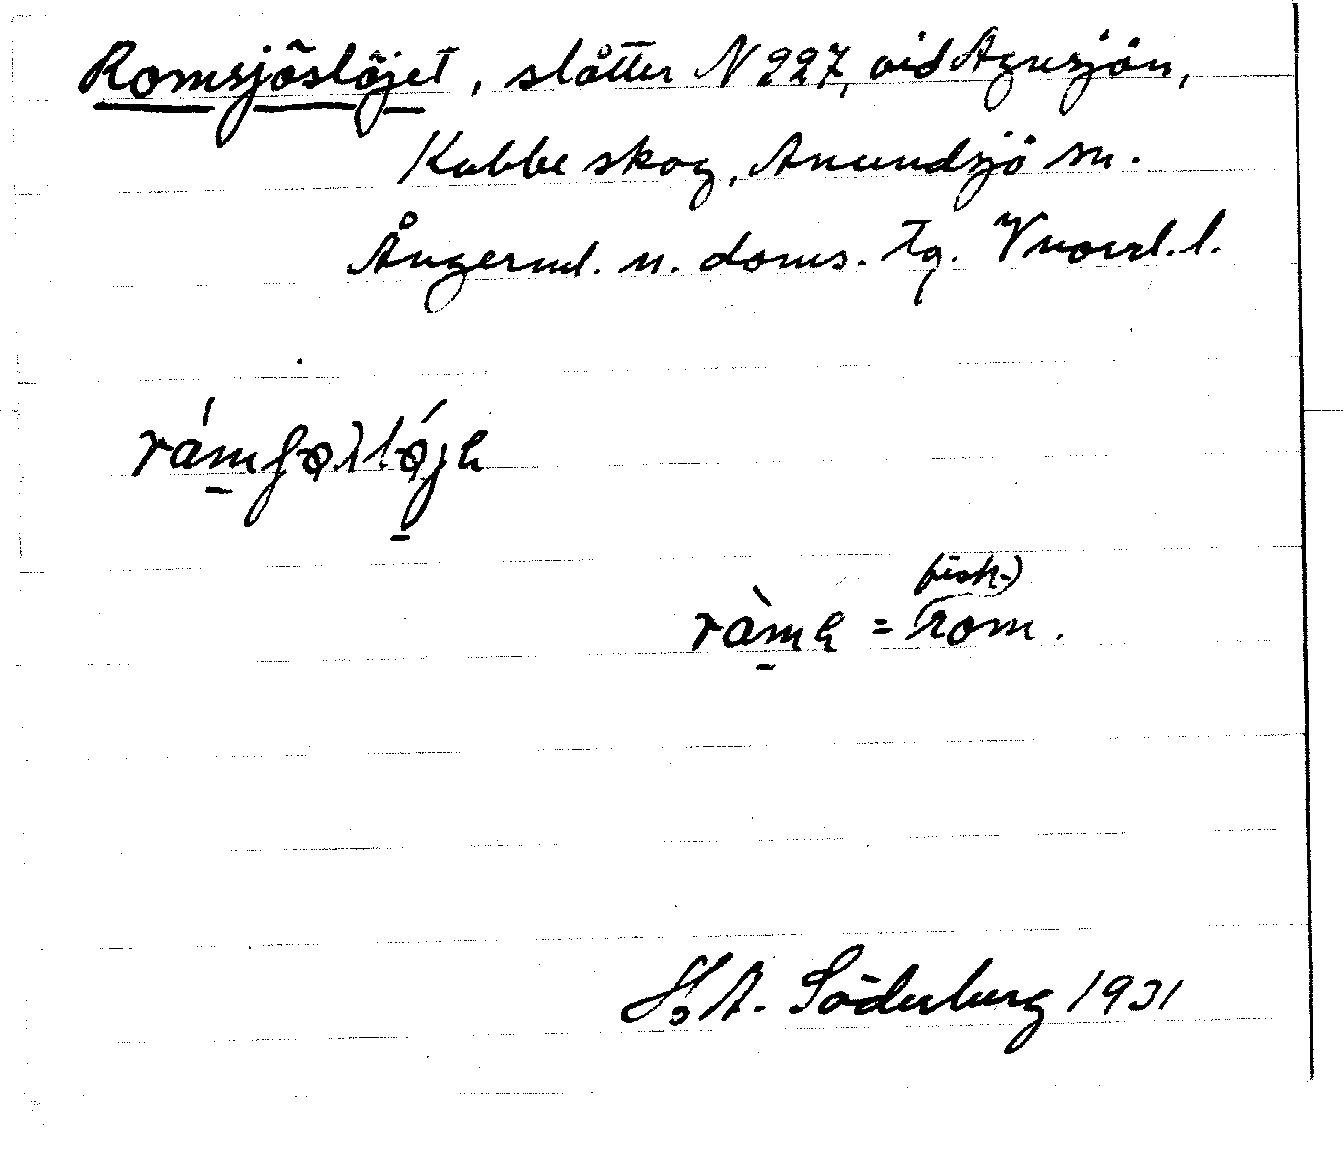 Romsjöslöjet, slåtter N 227, vid Agnsjön,
Kubbe skog, Anundsjö sn.
Ångerml. n. doms. tg. Vnorrl. l.
(fisk-)
= rom.
H. A. Söderberg 1931